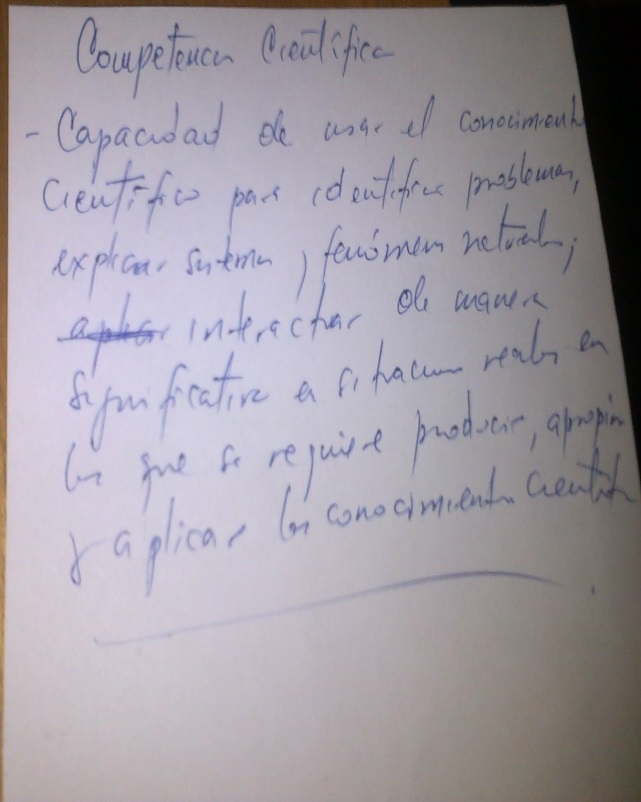 Competencia Científica
- Capacidad de usar el conocimiento
Científico para identificar problemas,
explicar sistemas, fenómenos naturales;
aplicar interactuar de manera
significativa en situaciones reales en
los que se requiere producir, apropiar
y aplicar los conocimientos científicos